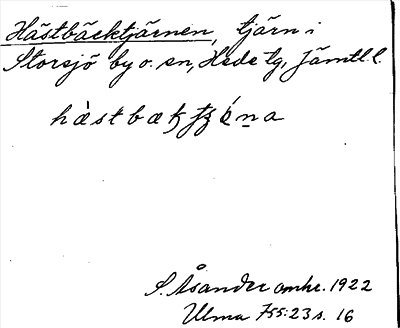 Hästbäcktjärnen, tjärn i
Storsjö by o. sn, Hede tg, Jämtl. l.
hästbæꞎ
S. Åsander omkr. 1922
Ulma 755:23 s. 16